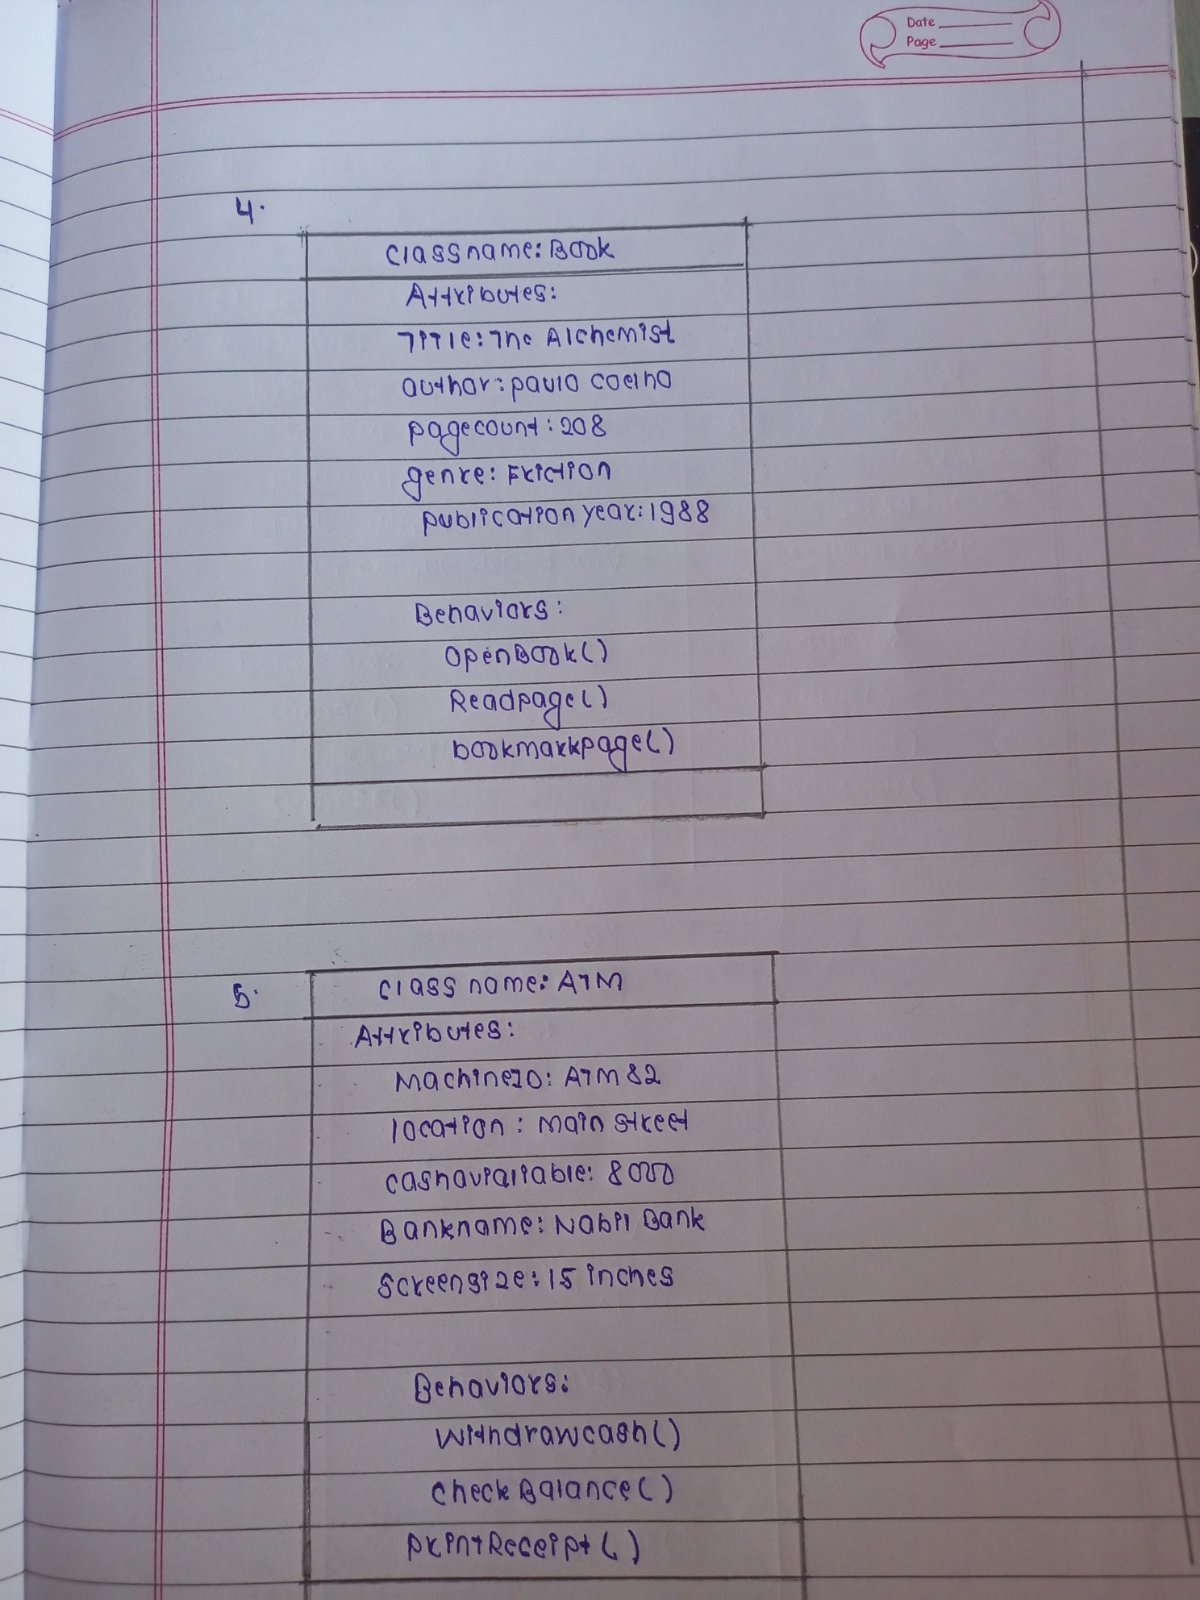 Date
Page
4.
Classname: Book
Attributes:
Title: The Alchemist
author: paulo coelho
pagecount: 208
genre: Friction
publication year: 1988
Behaviors:
OpenBook()
Readpage()
bookmarkpage()
5.
Class name: ATM
Attributes:
MachineID: ATM82
location: Main street
cashavialiable: 8000
Bankname: Nabil Bank
Screensize: 15 inches
Behaviors:
withdrawcash()
checkBalance()
printReceipt()